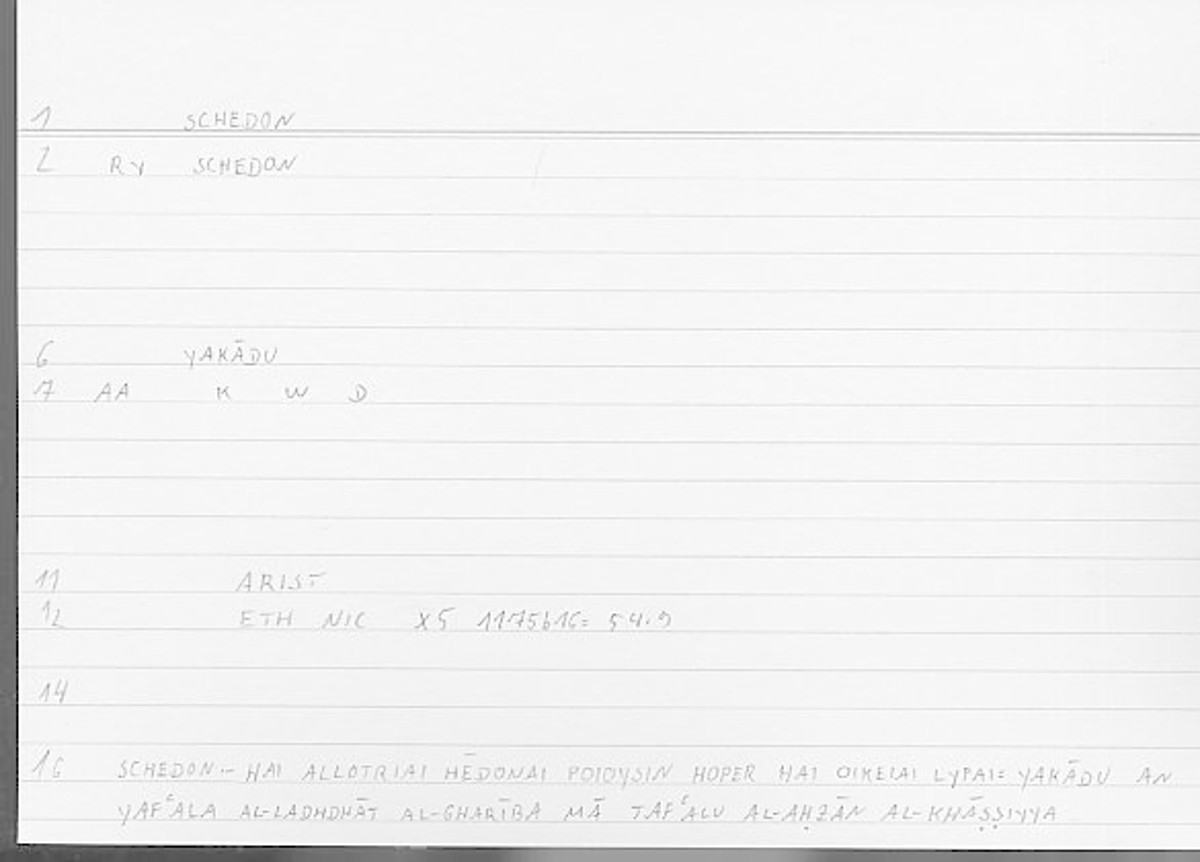 1 SCHEDON
2 RY SCHEDON
6 YAKĀDU
7 AA K W D
11 ARIST
12 ETH NIC X5 1175b16= 54.9
14
16 SCHEDON... HAI ALLOTRIAI HĒDONAI POIOYSIN HOPER HAI OIKEIAI LYPAI= YAKĀDU AN
YAFʿALA AL-LADHDHĀT AL-GHARĪBA MĀ TAFʿALU AL-AḤZĀN AL-KHĀṢṢIYYA